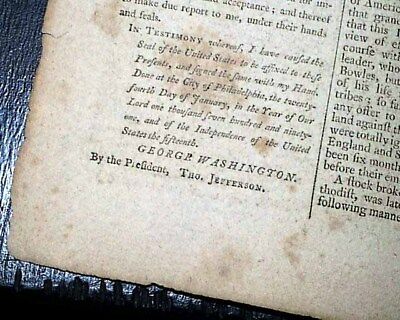 acceptance; and thereof
to make due report to me, under their hands
and seals.
In Testimony whereof, I have caused the
Seal of the United States to be affixed to these
Presents, and signed the same with my Hand.
Done at the City of Philadelphia, the twenty-
fourth Day of January, in the Year of Our
Lord one thousand seven hundred and ninety-
one, and of the Independence of the United
States the fifteenth.
GEORGE WASHINGTON.
By the President, Tho. Jefferson.
of America
that grand
view of
course with
leader,
Bowles, but
of his
tribes; to
any offer to
land against
were totally
England and
been six month
before their
A stock broke
thodist, was late
following manne